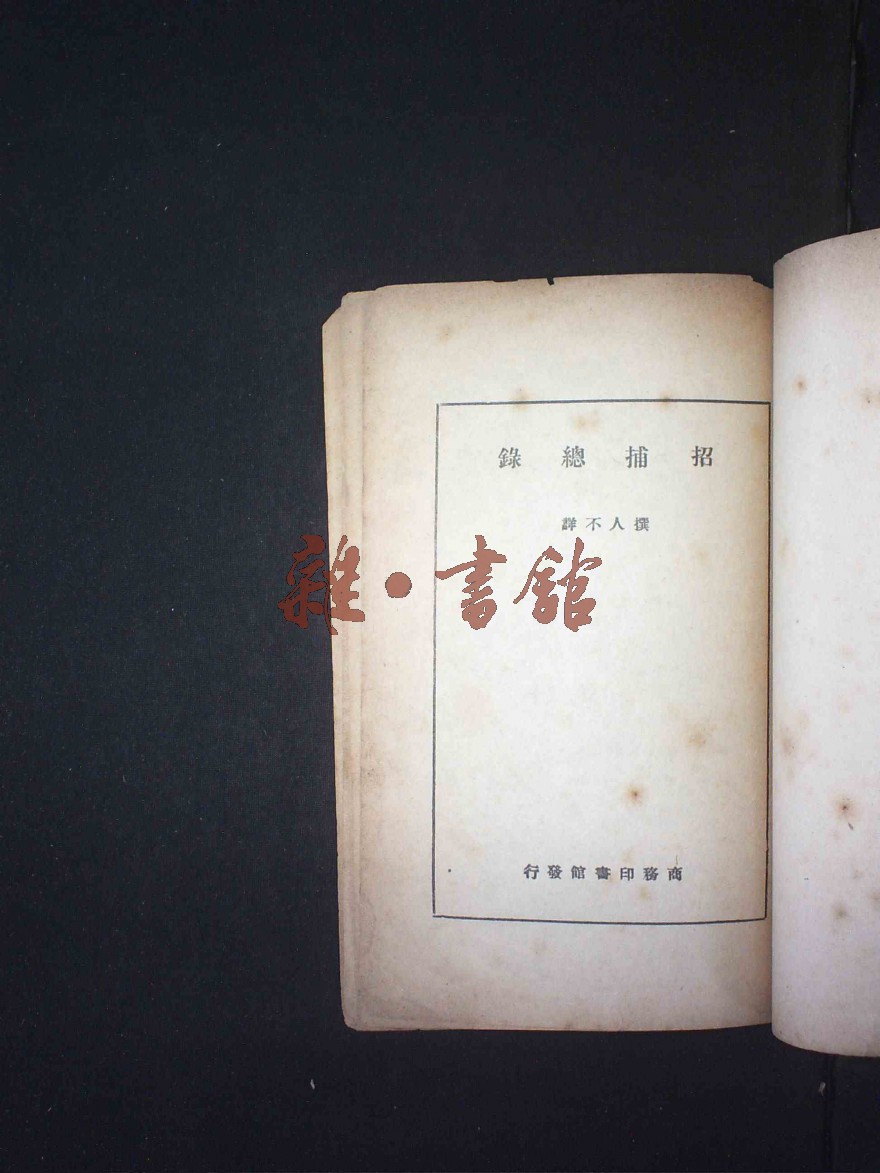 招捕總錄
撰人不詳
雜·書館
商務印書館發行